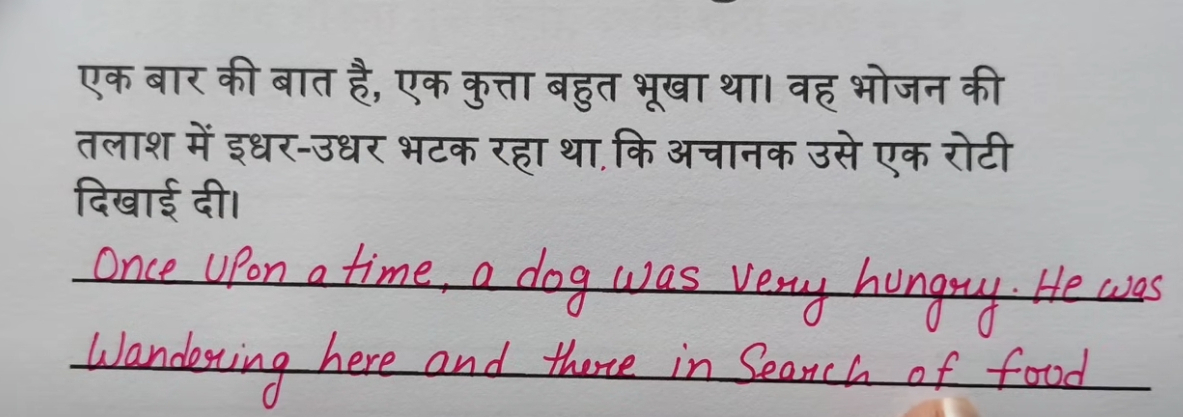 एक बार की बात है, एक कुत्ता बहुत भूखा था। वह भोजन की
तलाश में इधर-उधर भटक रहा था कि अचानक उसे एक रोटी
दिखाई दी।
Once upon a time, a dog was very hungry. He was
Wandering here and there in Search of food